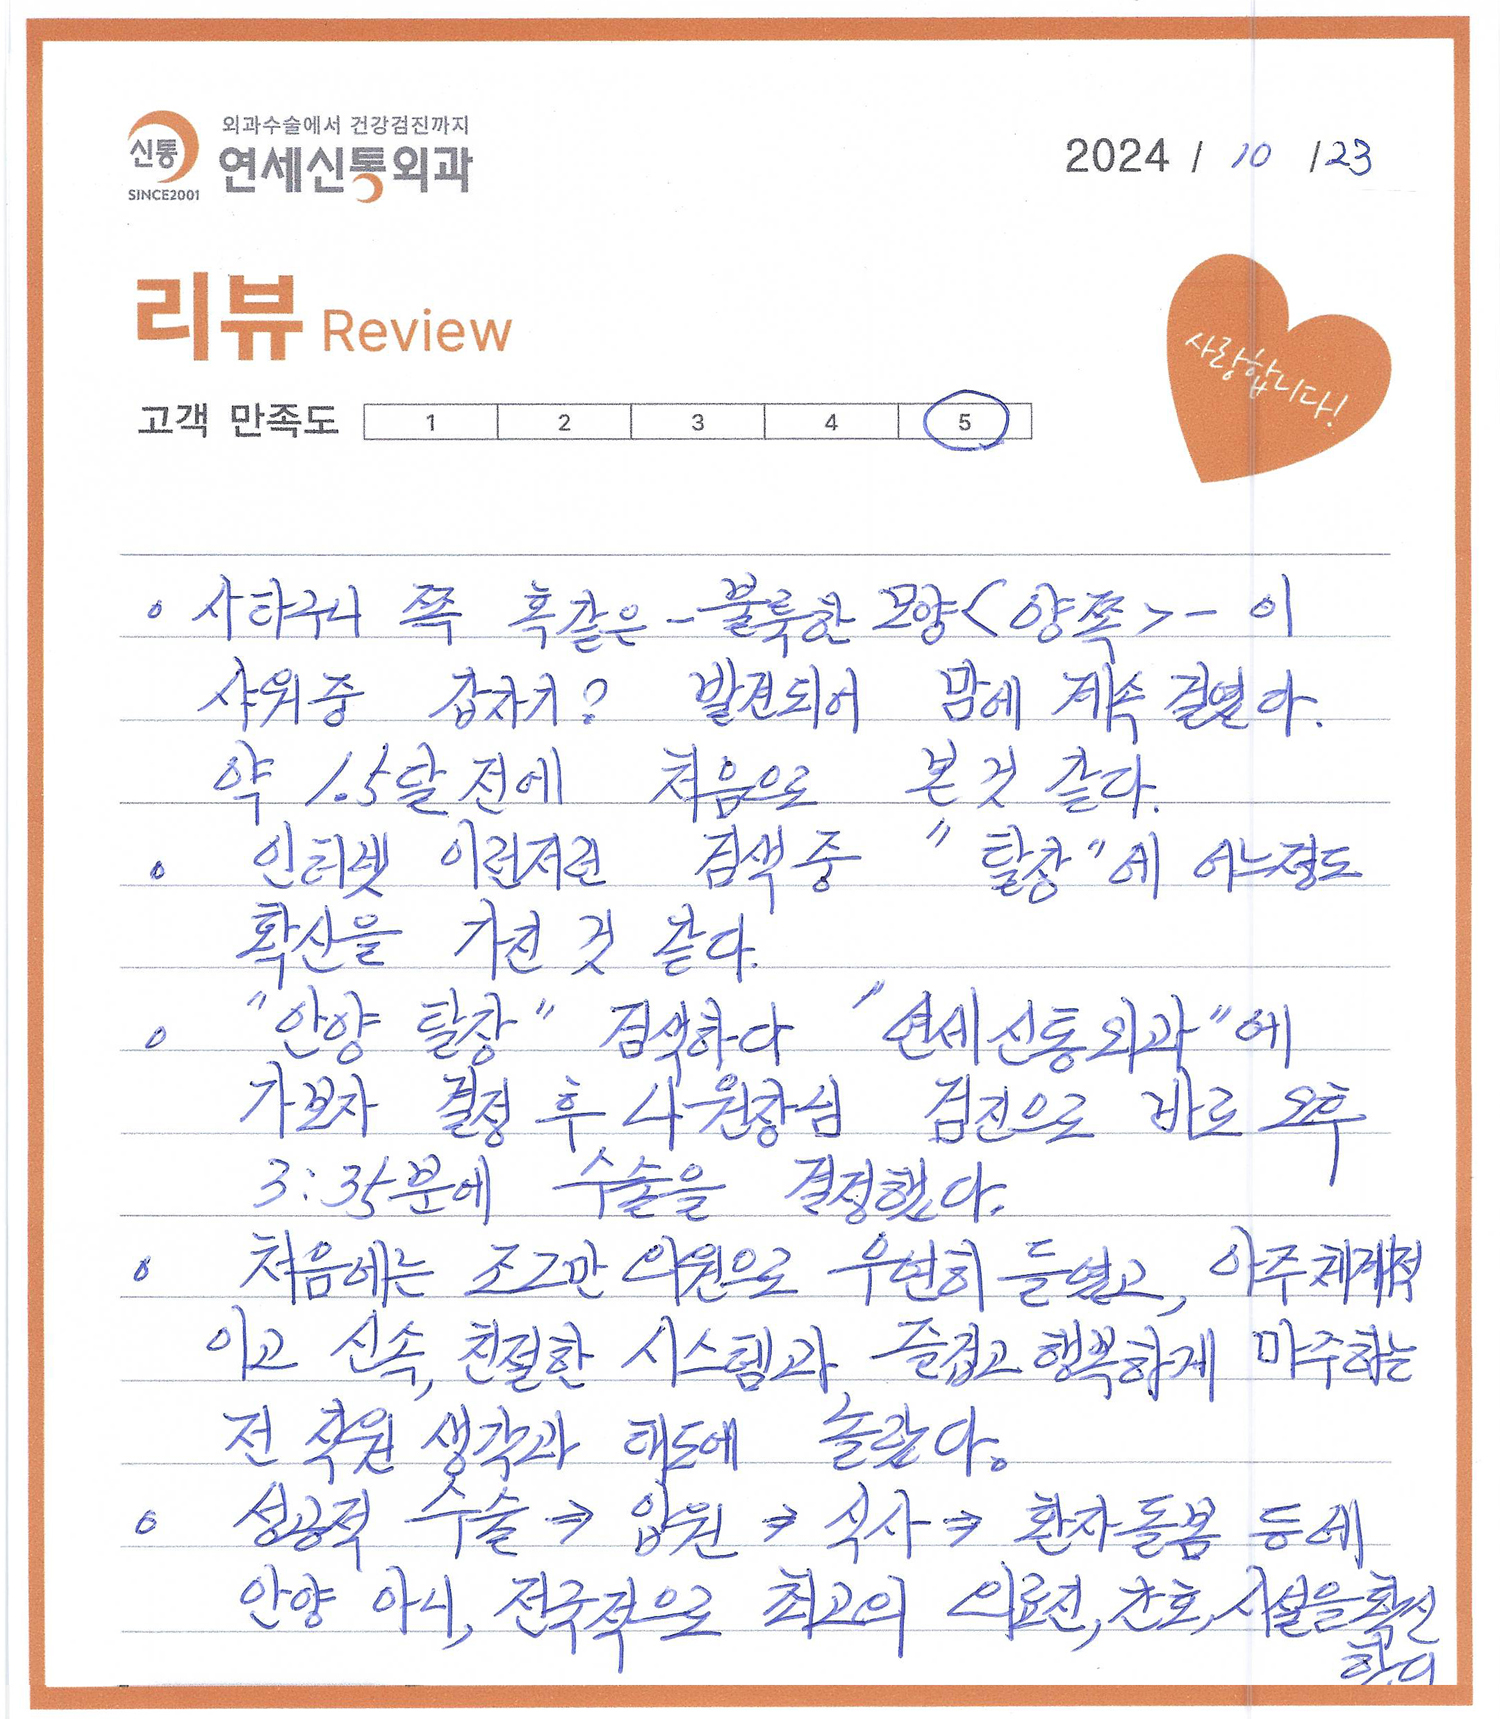 외과수술에서 건강검진까지
신통
연세신통외과
SINCE2001
2024 / 10 / 23
리뷰 Review
사랑합니다!
고객 만족도 1 2 3 4 5
사타구니 쪽 혹같은 - 불룩한 모양<양쪽> - 이
샤워중 갑자기? 발견되어 맘에 계속 걸렸다.
약 1.5달 전에 처음으로 본 것 같다.
인터넷 이런저런 검색 중 "탈장"에 어느정도
확신을 가진 것 같다.
"안양 탈장" 검색하다 "연세신통외과"에
가보자 결정 후, 4원장님 검진으로 바로 오후
3:35분에 수술을 결정했다.
처음에는 조그만 의원으로 우연히 들렸고, 아주 체계적
이고 신속, 친절한 시스템과, 즐겁고 행복하게 마주하는
전 직원 생각과 태도에 놀랐다.
성공적 수술 → 입원 → 식사 → 환자돌봄 등에
안양 아니, 전국적으로 최고의 의료진, 간호, 시설을 확신
한다